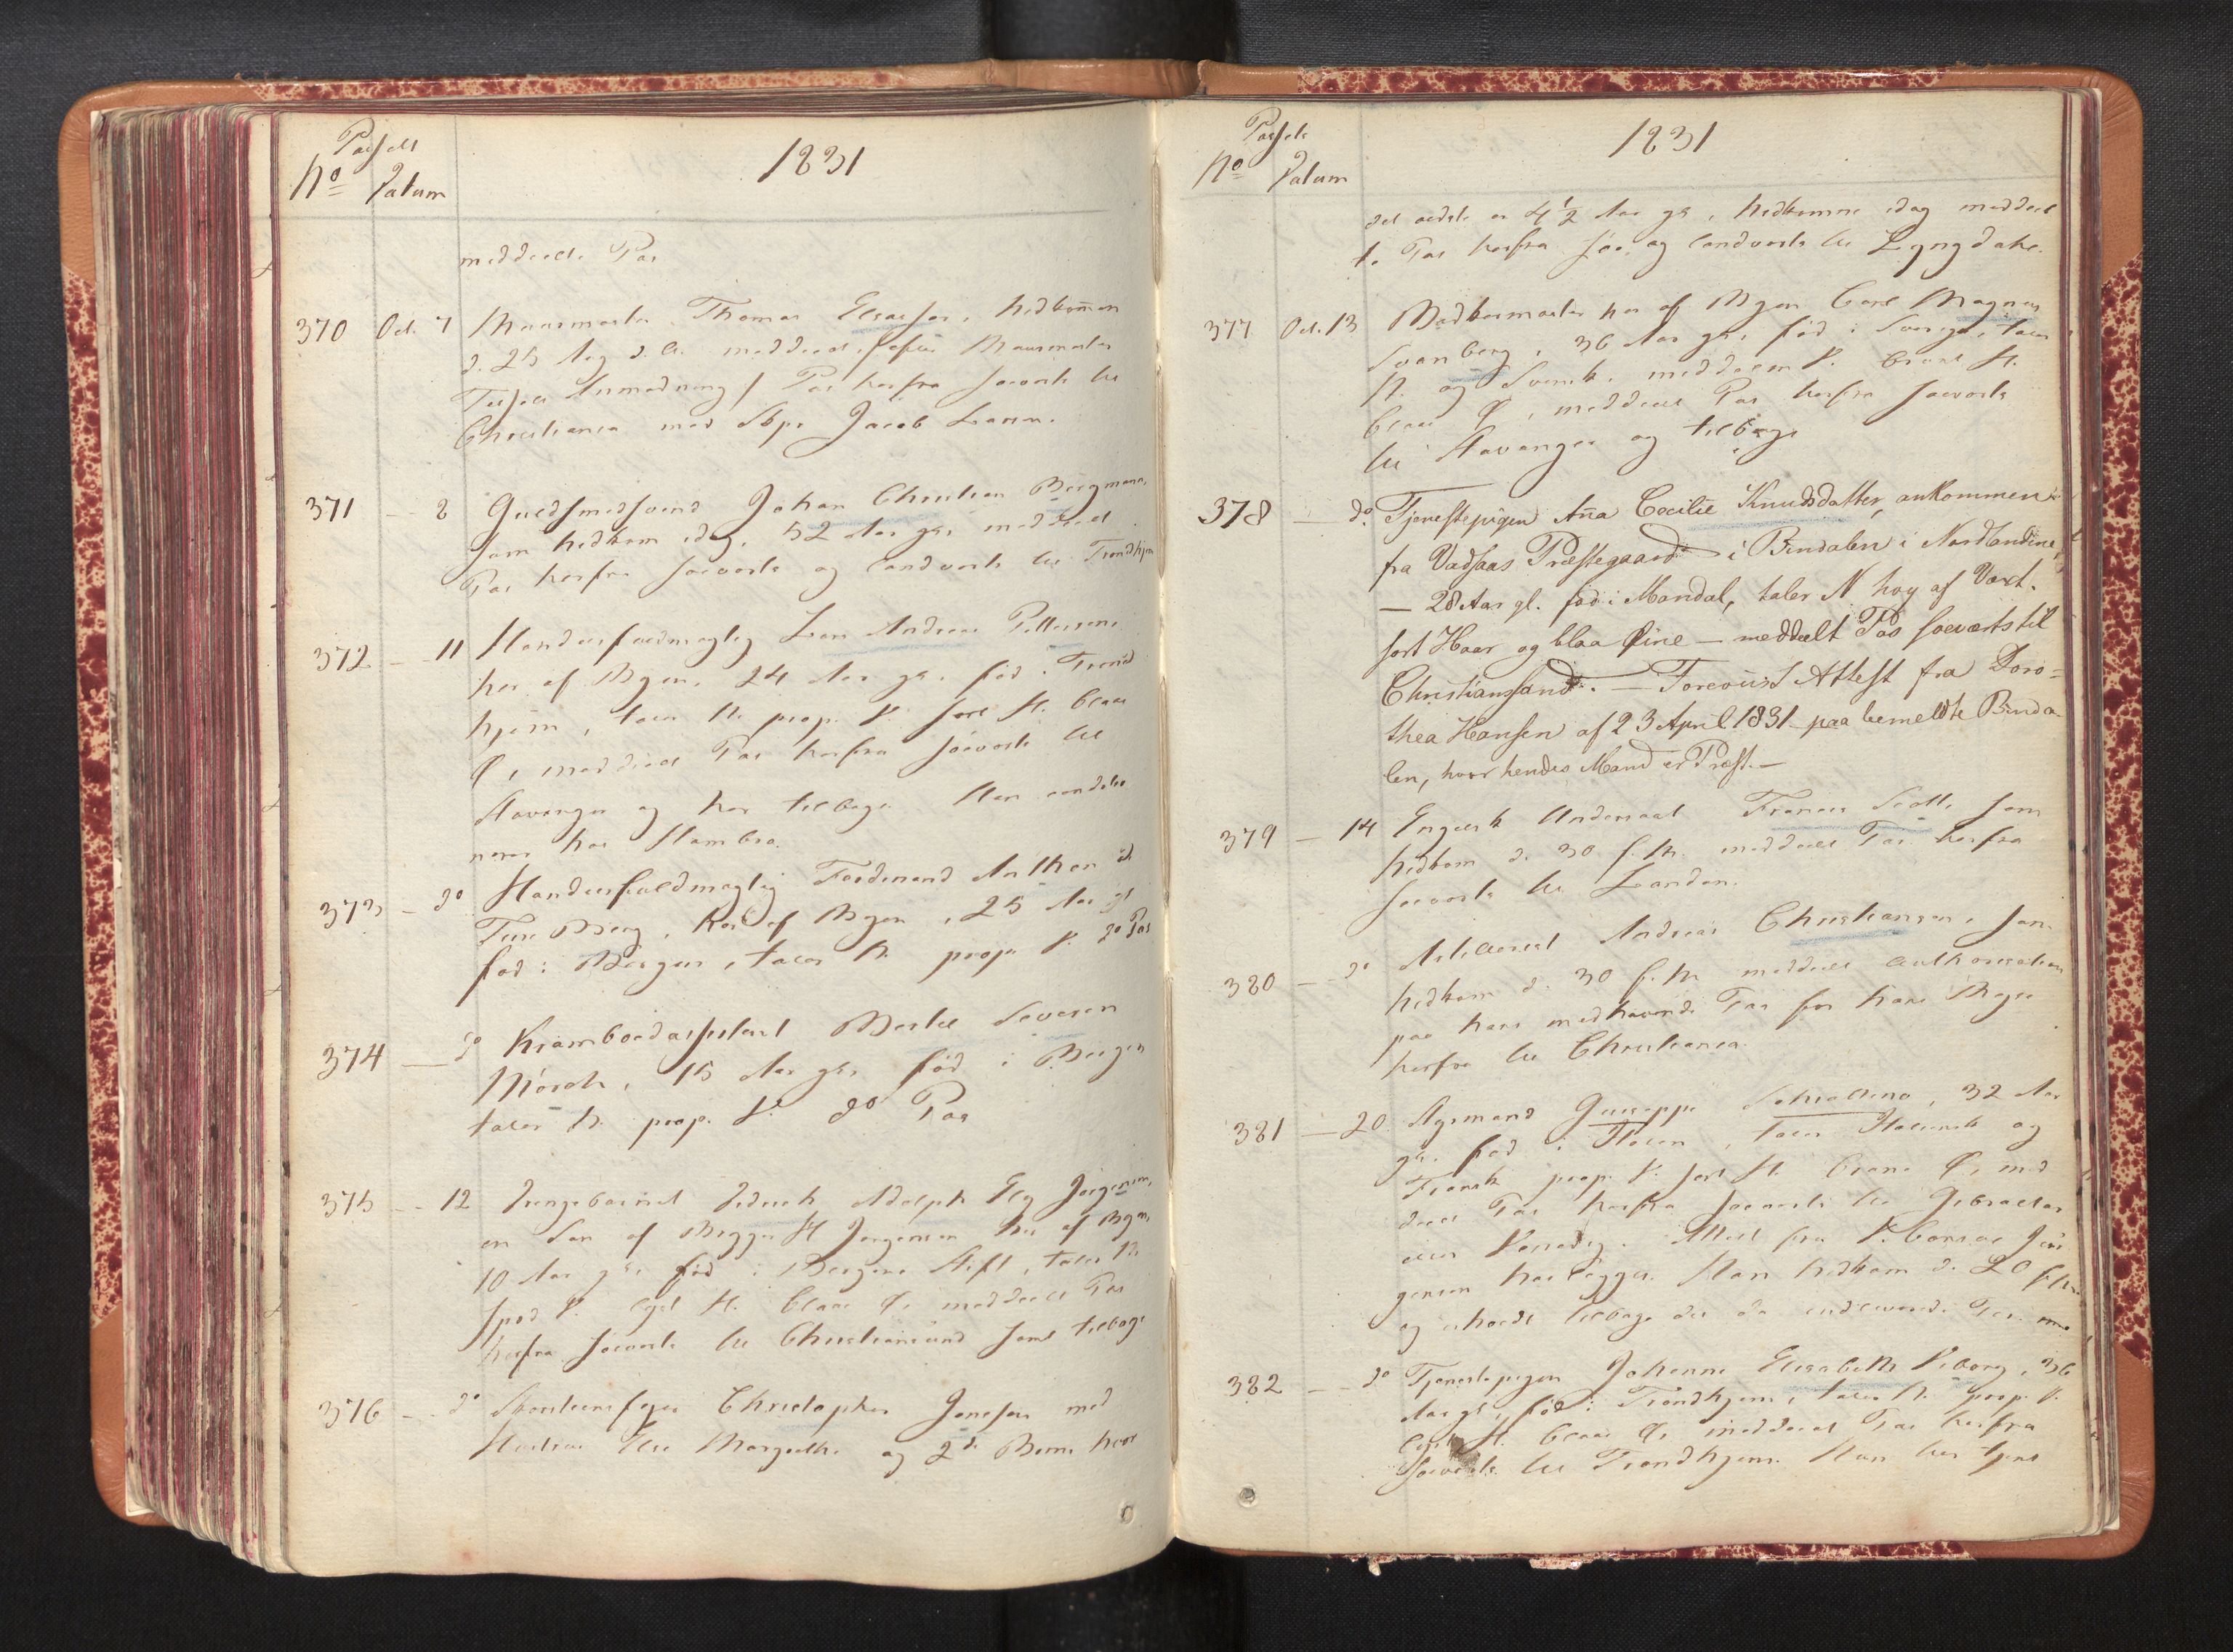 Passets
No Datum
1831
meddeelt Pas
370 Oct. 7 Muurmester Thomas , hidkommen
d. 25 Aug d. A. meddeelt, Muurmester
Anmodning / Pas herfra søeverts til
Christiania med Skpr Jacob Larsen.
371 — 8 Guldsmedsvend Johan Christian Bergmann,
som hidkom idag, 52 Aar gl. meddeelt
Pas herfra søeverts og landverts til Trondhjem
372 — 11 Handelsfuldmægtig Andreas Pettersen
her af Byen, 24 Aar gl. fød i Trond
hjem, taler N. prop. V. sort H. blaae
Ø, meddeelt Pas herfra søeverts til
Stavanger og her tilbage. Han
hos Hambro.
373 — do Handelsfuldmægtig Ferdinand Anthon
Berg, her af Byen, 25 Aar gl
fød i Bergen, taler N. prop. V. do Pas
374 — do Kramboedassistent Bertel Severin
Mörch, 15 Aar gl. fød i Bergen
taler N. prop. V. do Pas
375 — 12 Drengebarnet Diderich Adolph Jørgensen,
en Søn af H Jørgensen her af Byen,
10 Aar gl. fød i Bergens Stift, taler N.
spæd V. lyst H. blaae Ø. meddeelt Pas
herfra søeverts til Christiansund samt tilbage
376 — do Skorsteensfeier Christopher med
Hustrue og 2de Børn hvor
Passets
No Datum
1831
det ældste er 4 1/2 Aar gl, hidkomne idag meddeel
te Pas herfra søe, og landverts til Lyngdahl.
377 Oct. 13 Bødkermester her af Byen Carl Magnus
Svanberg, 36 Aar gl, fød i Sverige, taler
N. og Svensk, middelm V. bruunt H.
blaae Ø, meddeelt Pas herfra søeverts
til Stavanger og tilbage
378 — do. Tjenestepigen Aña Cecilie Knudsdatter, ankommen
fra Vadsaas Præstegaard i Bindalen i Nordlandene
— 28 Aar gl. fød i Mandal, taler N høy af Vext.
sort Haar og blaa Øine — meddeelt Pas søeværts til
Christianssand. — Foreviist Attest fra Doro=
thea Hansen af 23 April 1831 paa bemeldte Binda-
len, hvor hendes Mand er Præst.—
379 — 14 Engelsk Undersaat Francis Scott, som
hidkom d. 30 f. M. meddeelt Pas herfra
søeverts til London.
380 — do Artillerist Andreas Christiansen, som
hidkom d. 30 f. M. meddeelt Authorisation
paa hans medhavende Pas for hans Reyse
herfra til Christiania.
381 — 20. Styrmand Giuseppe , 32 Aar
gl. fød i Italien, taler Italiensk og
Fransk prop. V. sort H. brune Ø, med
deelt Pas herfra søeverts til Gibraltar
eller Venedig. Attest fra V. Consul Jør
gensen her Han hidkom d. 20 f. M.
og erholdt tilbage det da indleverede Pas.
382 — do Tjenestepigen Johanne Elisabeth Viborg, 36
Aar gl, fød i Trondhjem, taler N. prop. V.
lyst H. blaae Ø, meddeelt Pas herfra
søeverts til Trondhjem. Hun har tjent